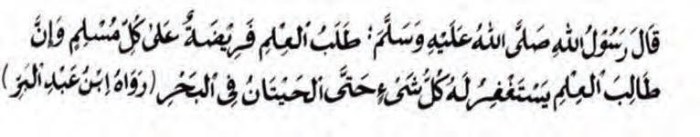 قَالَ رَسُوْلُ اللهِ صَلَّى اللهُ عَلَيْهِ وَسَلَّمَ: طَلَبُ الْعِلْمِ فَرِيْضَةٌ عَلَى كُلِّ مُسْلِمٍ وَإِنَّ
طَالِبَ الْعِلْمِ يَسْتَغْفِرُ لَهُ كُلُّ شَيْءٍ حَتَّى الْحِيْتَانُ فِى الْبَحْرِ (رَوَاهُ ابْنُ عَبْدِ الْبَرِّ)